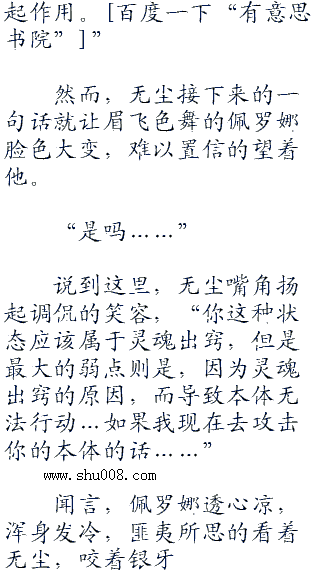 起作用。[百度一下“有意思
书院”]”
然而，无尘接下来的一
句话就让眉飞色舞的佩罗娜
脸色大变，难以置信的望着
他。
“是吗……”
说到这里，无尘嘴角扬
起调侃的笑容，“你这种状
态应该属于灵魂出窍，但是
最大的弱点则是，因为灵魂
出窍的原因，而导致本体无
法行动…如果我现在去攻击
你的本体的话……”
www.shu008.com
闻言，佩罗娜透心凉，
浑身发冷，匪夷所思的看着
无尘，咬着银牙